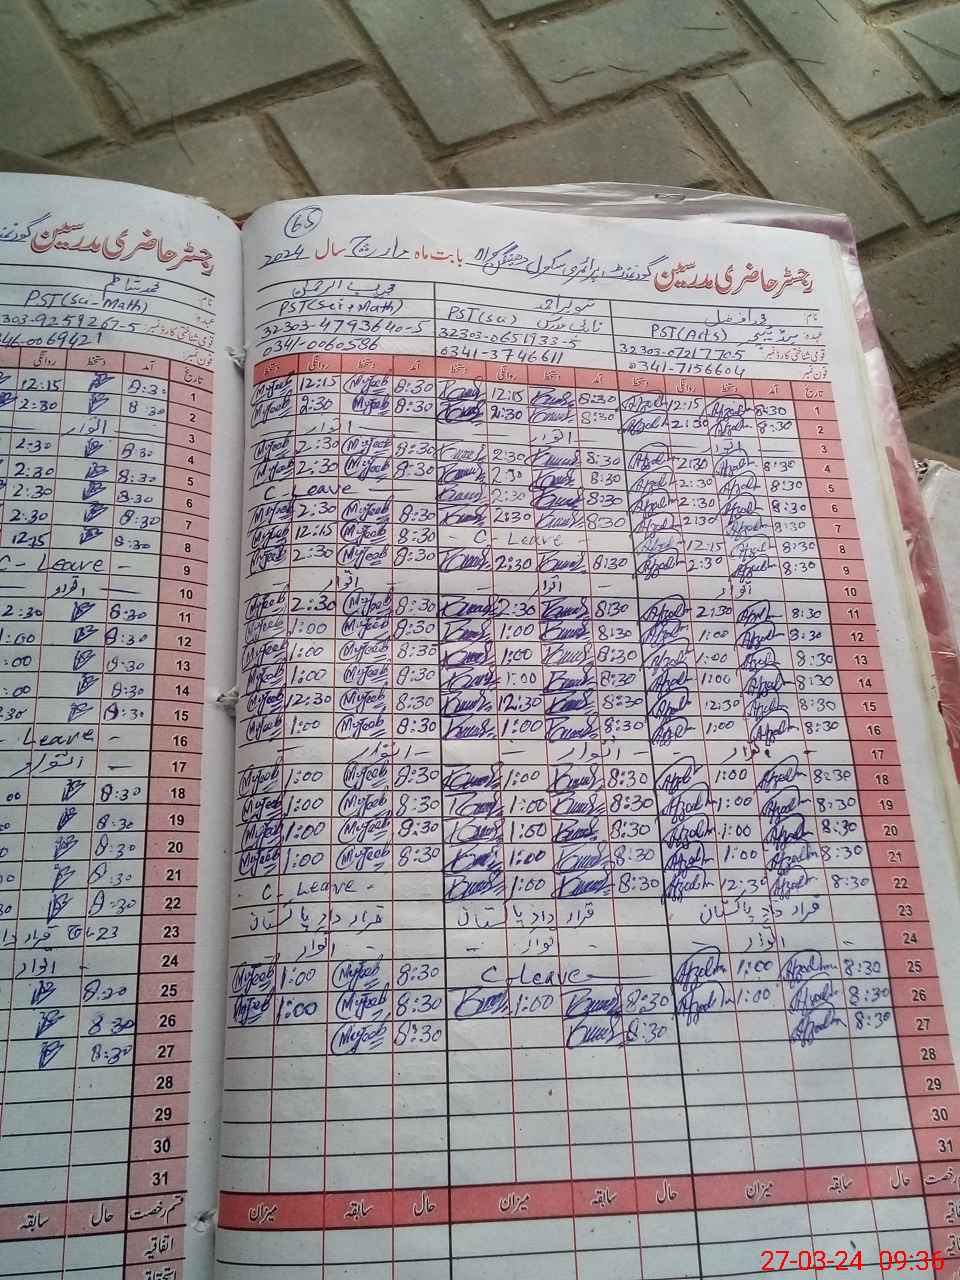 65
رجسٹر حاضری مدرسین گورنمنٹ پرائمری سکول بابت ماہ مارچ سال 2024
نام: محمد افضل
عہدہ: ہیڈ ٹیچر PST(Arts)
قومی شناختی کارڈ نمبر: 32303-0721770-5
فون نمبر: 0341-7156604
تنویر احمد
نائب مدرس PST(Sci)
32303-0651733-5
0341-3746611
مجیب الرحمن
PST(Sci+Math)
32303-4793640-5
0341-0060586
تاریخ آمد دستخط روانگی دستخط آمد دستخط روانگی دستخط آمد دستخط روانگی دستخط
1 8:30 Afzal 12:15 Afzal 8:30 12:15 8:30 Mujeeb 12:15 Mujeeb
2 8:30 Afzal 2:30 Afzal 8:30 2:30 8:30 Mujeeb 2:30 Mujeeb
3 اتوار اتوار اتوار
4 8:30 Afzal 2:30 Afzal 8:30 2:30 8:30 Mujeeb 2:30 Mujeeb
5 8:30 Afzal 2:30 Afzal 8:30 2:30 8:30 Mujeeb 2:30 Mujeeb
6 8:30 Afzal 2:30 Afzal 8:30 2:30 C-Leave
7 8:30 Afzal 2:30 Afzal 8:30 2:30 8:30 Mujeeb 2:30 Mujeeb
8 8:30 Afzal 12:15 Afzal C-Leave 8:30 Mujeeb 12:15 Mujeeb
9 8:30 Afzal 2:30 Afzal 8:30 2:30 8:30 Mujeeb 2:30 Mujeeb
10 اتوار اتوار اتوار
11 8:30 Afzal 2:30 Afzal 8:30 2:30 8:30 Mujeeb 2:30 Mujeeb
12 8:30 Afzal 1:00 Afzal 8:30 1:00 8:30 Mujeeb 1:00 Mujeeb
13 8:30 Afzal 1:00 Afzal 8:30 1:00 8:30 Mujeeb 1:00 Mujeeb
14 8:30 Afzal 1:00 Afzal 8:30 1:00 8:30 Mujeeb 1:00 Mujeeb
15 8:30 Afzal 12:30 Afzal 8:30 12:30 8:30 Mujeeb 12:30 Mujeeb
16 8:30 Afzal 1:00 Afzal 8:30 1:00 8:30 Mujeeb 1:00 Mujeeb
17 اتوار اتوار اتوار
18 8:30 Afzal 1:00 Afzal 8:30 1:00 8:30 Mujeeb 1:00 Mujeeb
19 8:30 Afzal 1:00 Afzal 8:30 1:00 8:30 Mujeeb 1:00 Mujeeb
20 8:30 Afzal 1:00 Afzal 8:30 1:00 8:30 Mujeeb 1:00 Mujeeb
21 8:30 Afzal 1:00 Afzal 8:30 1:00 8:30 Mujeeb 1:00 Mujeeb
22 8:30 Afzal 12:30 Afzal 8:30 1:00 C-Leave
23 قرار داد پاکستان قرار داد پاکستان قرار داد پاکستان
24 اتوار اتوار اتوار
25 8:30 Afzal 1:00 Afzal C-Leave 8:30 Mujeeb 1:00 Mujeeb
26 8:30 Afzal 1:00 Afzal 8:30 1:00 8:30 Mujeeb 1:00 Mujeeb
27 8:30 Afzal 8:30 8:30 Mujeeb
28
29
30
31
حال سابقہ میزان حال سابقہ میزان حال سابقہ میزان
رجسٹر حاضری مدرسین
نام:
عہدہ: PST(Sci-Math)
قومی شناختی کارڈ نمبر: 303-9259267-5
فون نمبر: 46-0069421
تاریخ آمد دستخط روانگی
1 8:30 12:15
2 8:30 2:30
3 اتوار
4 8:30 2:30
5 8:30 2:30
6 8:30 2:30
7 8:30 2:30
8 8:30 12:15
9 C-Leave
10 اتوار
11 8:30 2:30
12 8:30 1:00
13 8:30 :00
14 8:30 :00
15 8:30 :30
16 Leave
17 اتوار
18 8:30 00
19 8:30
20 8:30
21 8:30
22 8:30
23 23 مارچ قرار داد
24 اتوار
25 8:30
26 8:30
27 8:30
28
29
30
31
قسم رخصت حال سابقہ
اتفاقیہ
27-03-24 09:36